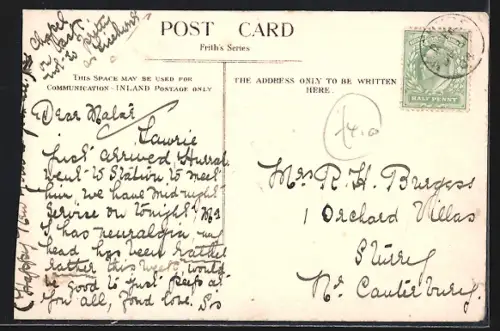 POST CARD
Frith's Series
THIS SPACE MAY BE USED FOR
COMMUNICATION - INLAND POSTAGE ONLY
THE ADDRESS ONLY TO BE WRITTEN
HERE.
HALF PENNY
Chapel
on
Dear
Lawrie
just arrived, Hurrah
went to Station to meet
him, we have midnight
service on tonight,
has neuralgia, my
head has been rather
rather this week, would
be good to just peep at
you all, fond love. Sis
(Happy New
Mrs R. H. Burgess
1 Orchard Villas
Sturry
Nr Canterbury.